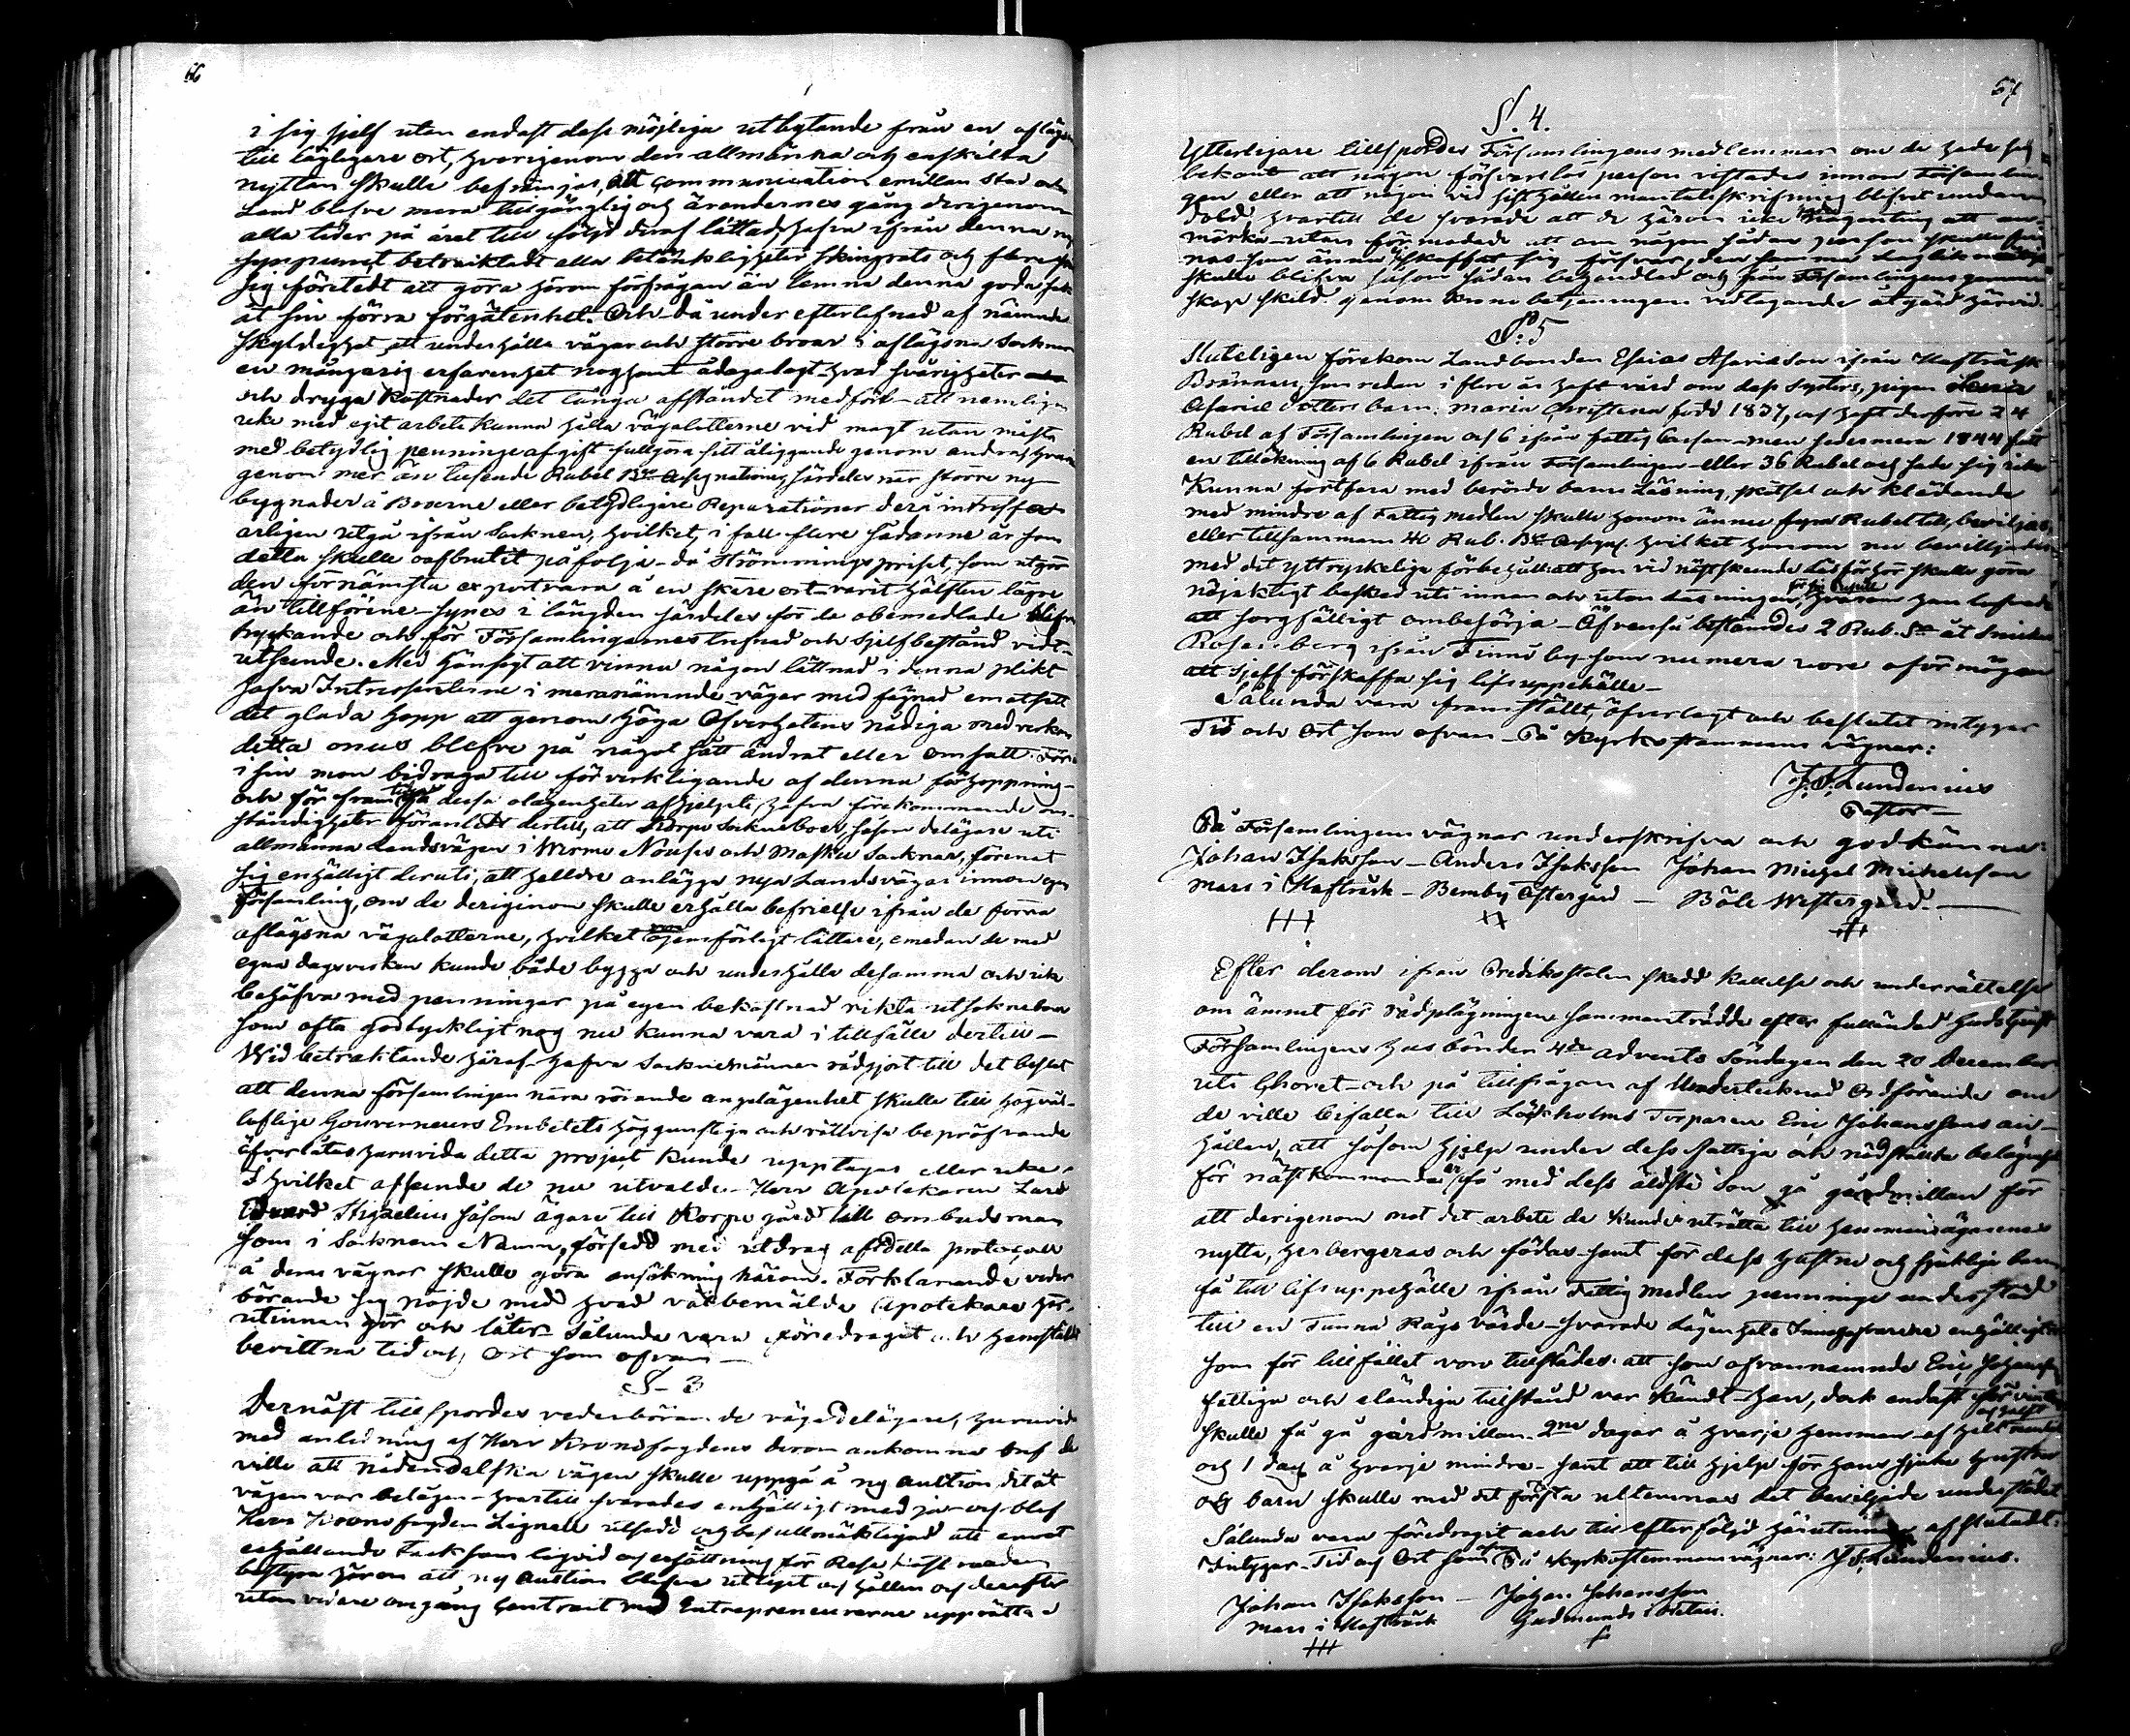 66
i sig sjelf utan endast dess möjliga utbytande från en aflägsn
till lägligare ort, hvarigenom den allmänna och enskilta
nyttan skulle befrämjas, att communication emillan stad och
Land blefve mera tillgänglig och ärendernes gång derigenom
alla tider på året till följd deraf lättad, hafva ifrån denna ny
synpunct betraktadt alla betänkligheter skingrats och flere
sig företedt att göra härom förfrågan än lemna denna goda sak
åt sin förra förgätenhet. Och då under efterlefnad af nämnde
skyldighet att underhålla vägar och större broar i aflägsna Socknar
en mångårig erfarenhet noghsamt ådagalagt hvad svårigheter
och dryga kostnader det långa afståndet medfört – att nemligen
icke med egit arbete kunna hålla vägalotterne vid magt utan måste
med betydlig penninge afgift fullgöra sitt åliggande genom andra, hvar
genom mer än tusende Rubel Bco Assignationer, särdeles när större ny-
byggnader å Broarne eller betydligare Reparationer derå inträffa
årligen utgå ifrån Socknen, hvilket, i fall flere sådanne år som
detta skulle oafbrutit påfölja – då Strömmings priset, som utgör
den förnämsta exportvara å en skäre ort – varit hälften lägre
än tillförene – synes i längden särdeles för de obemedlade blifva
tryckande och för Församlingarnes lefnad och sjelfbestånd vidt-
utseende. Med hänsigt att vinna någon lättnad i denna plikt
hafva Intressenterne i meranämnde vägar med fägnad emotsett
det glada hopp att genom höga Öfverhetens nådiga medverkan
detta onus blefve på något sätt ändrat eller omsatt. För
i sin mon bidraga till förverkligande af denna förhoppning –
och för framtiden få dessa olägenheter afhjelpte, hafva förekommande om-
ständigheter föranledt dertill, att Korpo Sockneboer, såsom delägare uti
allmänna Landsvägen i Wirmo Nousis och Masku Socknar, förenat
sig enhälligt deruti, att helldre anlägga nya Landsvägar innom egen
Församling, om de derigenom skulle erhålla befrielse ifrån de förra
aflägsna vägalotterne, hvilket vore ojemförligt lättare, emedan de med
egna dagsverken kunde både bygga och underhålla desamma och icke
behöfva med penningar på egen bekostnad
som ofta godtyckligt nog nu kunna vara i tillfälle dertill –
Wid betraktande häraf – hafva Socknemännen rådgjort till det beslut
att denna församlingen nära rörande angelägenhet skulle till högväl-
loflige Gouverneurs Embetets höggunstiga och rättvisa bepröfvande
öfverlåtas huruvida detta project kunde upptagas eller icke.
I hvilket afseende de nu utvalde – Herr Apothekaren Lars
Eduard Hjgælius såsom ägare till Korpo gård till ombudsman
som i Socknens Namn, försedd med utdrag af detta protocoll
å deras vägnar skulle göra ansökning härom. Förklarande veder-
börande sig nöjde med hvad välbemälde Apotekare här-
utinnan gör och låter. Sålunda vara föredraget och hemstäldt
bevittna tid och Ort som ofvan –
§. 3
Dernäst tillspordes vederbörande vägadelägare, huruvida
med anledning af Herr Kronofogdens derom ankomna bref de
ville att nådendalska vägen skulle uppgå å ny auction ditåt
vägen var belägen – hvartill svarades enhälligt med ja – och blef
Herr Kronofogden Lignell utsedd och befullmäktigad att emot
erhållande tacksam liqvid och ersättning för Resa
bestyra härom att ny auction blefve utlyst och hållen och derefter
utan vidare omgång Contract med Entrepreneurerne upprätta
67
§. 4.
Ytterligare tillspordes Församlingens medlemmar om de hade sig
bekant att någon försvarslös person vistades innom Församlin-
gen eller att någon vid sist hållen mantalsskrifning blifvit undan
dold, hvartill de svarade att de härom icke hade någonting att an-
märka – utan förmodade att om någon sådan person skulle fin-
nas som ännu ej skaffat sig försvar, den samma
skulle blifva såsom sådan behandlad och från Församlingens gemen-
skap skild genom Krono betjeningens vidtagande åtgärd härvid.
§. 5
Sluteligen förekom Landbonden Esaias Asarieson ifrån Kafträsk
Brännars, som redan i flere år haft vård om dess systers, pigan
Asariædotters barn, Maria Christina född 1837, och haft derföre 24
Rubel af Församlingen och 6 ifrån fattig Cassan – men sedermera 1844 fått
en tillökning af 6 Rubel ifrån Församlingen – eller 36 Rubel och sade sig icke
Kunna fortfara med berörde barns Läsning, skötsel och klädande
med mindre af Fattig medlen skulle honom ännu fyra Rubel till, beviljas,
eller tillsammans 40 Rub. Bco Assign. hvilket honom nu bevilljades
med det yttryckeliga förbehåll att han vid nästskeende Läsförhör skulle göra
nöjaktigt besked uti innan och utan läsningen för sig sjelf, hvarom han lofvade
att sorgfälligt ombesörja – Äfvenså bestämdes 2 Rub. Sr åt Smeden
Rosenberg ifrån Finnö by som numera vore oförmögen
att sjelf förskaffa sig lifsuppehälle –
Sålunda vara framställt, öfverlagt och beslutet intygar
Tid och Ort som ofvan – På Kyrkostämmans vägnar:
J. F. Lundenius
Pastor –
På Församlingens vägnar underskrifva och godkänna:
Johan Isaksson – Anders Isaksson Johan Michel Michelsson
Mars i Kafträsk – Bemby Östergård – Böle Westergård. –
Efter derom ifrån Predikstolen skedd Kallelse och underrättelse
om ämnet för rådplägningen sammanträdde efter fulländad Gudstjenst
Församlingens husbönder 4de Advents Söndagen den 20 December
uti Choret – och på tillfrågan af Undertecknad Ordförande om
de ville bifalla till Löfholms Torparen Eric Johanssons an-
hållan, att såsom hjelp under dess fattiga och nödställda belägenhet
för nästkommande år få med dess äldste Son gå gårdmillan för
att derigenom mot det arbete de Kunde uträtta till hemmansägarenes
nytta, herbergeras och födas samt för dess hustru och sjukliga barn
få till lifsuppehälle ifrån Fattig medlen penninge understöd
till en Tunna Rågs värde – svarade Lägenhets Innehafvarene enhälligt
som för tillfället voro tillstädes. att som ofvannämnde Eric Johanssons
fattiga och eländiga tillstånd var kändt – han, dock endast för vintern
skulle få gå gårdmillan 2ne dagar å hvarje hemman af helt och halft mantal
och 1 dag å hvarje mindre – samt att till hjelp för hans sjuka hustru
och barn skulle med det första utlemnas det beviljade understödet
Sålunda vara föredragit och till efterföljd härutinnan afslutadt:
Intygar Tid och Ort som På Kyrkostemmans vägnar: J. F. Lundenius.
Johan Isaksson – Johan Johansson
Mars i Kafträsk Gudmunds i Retais.